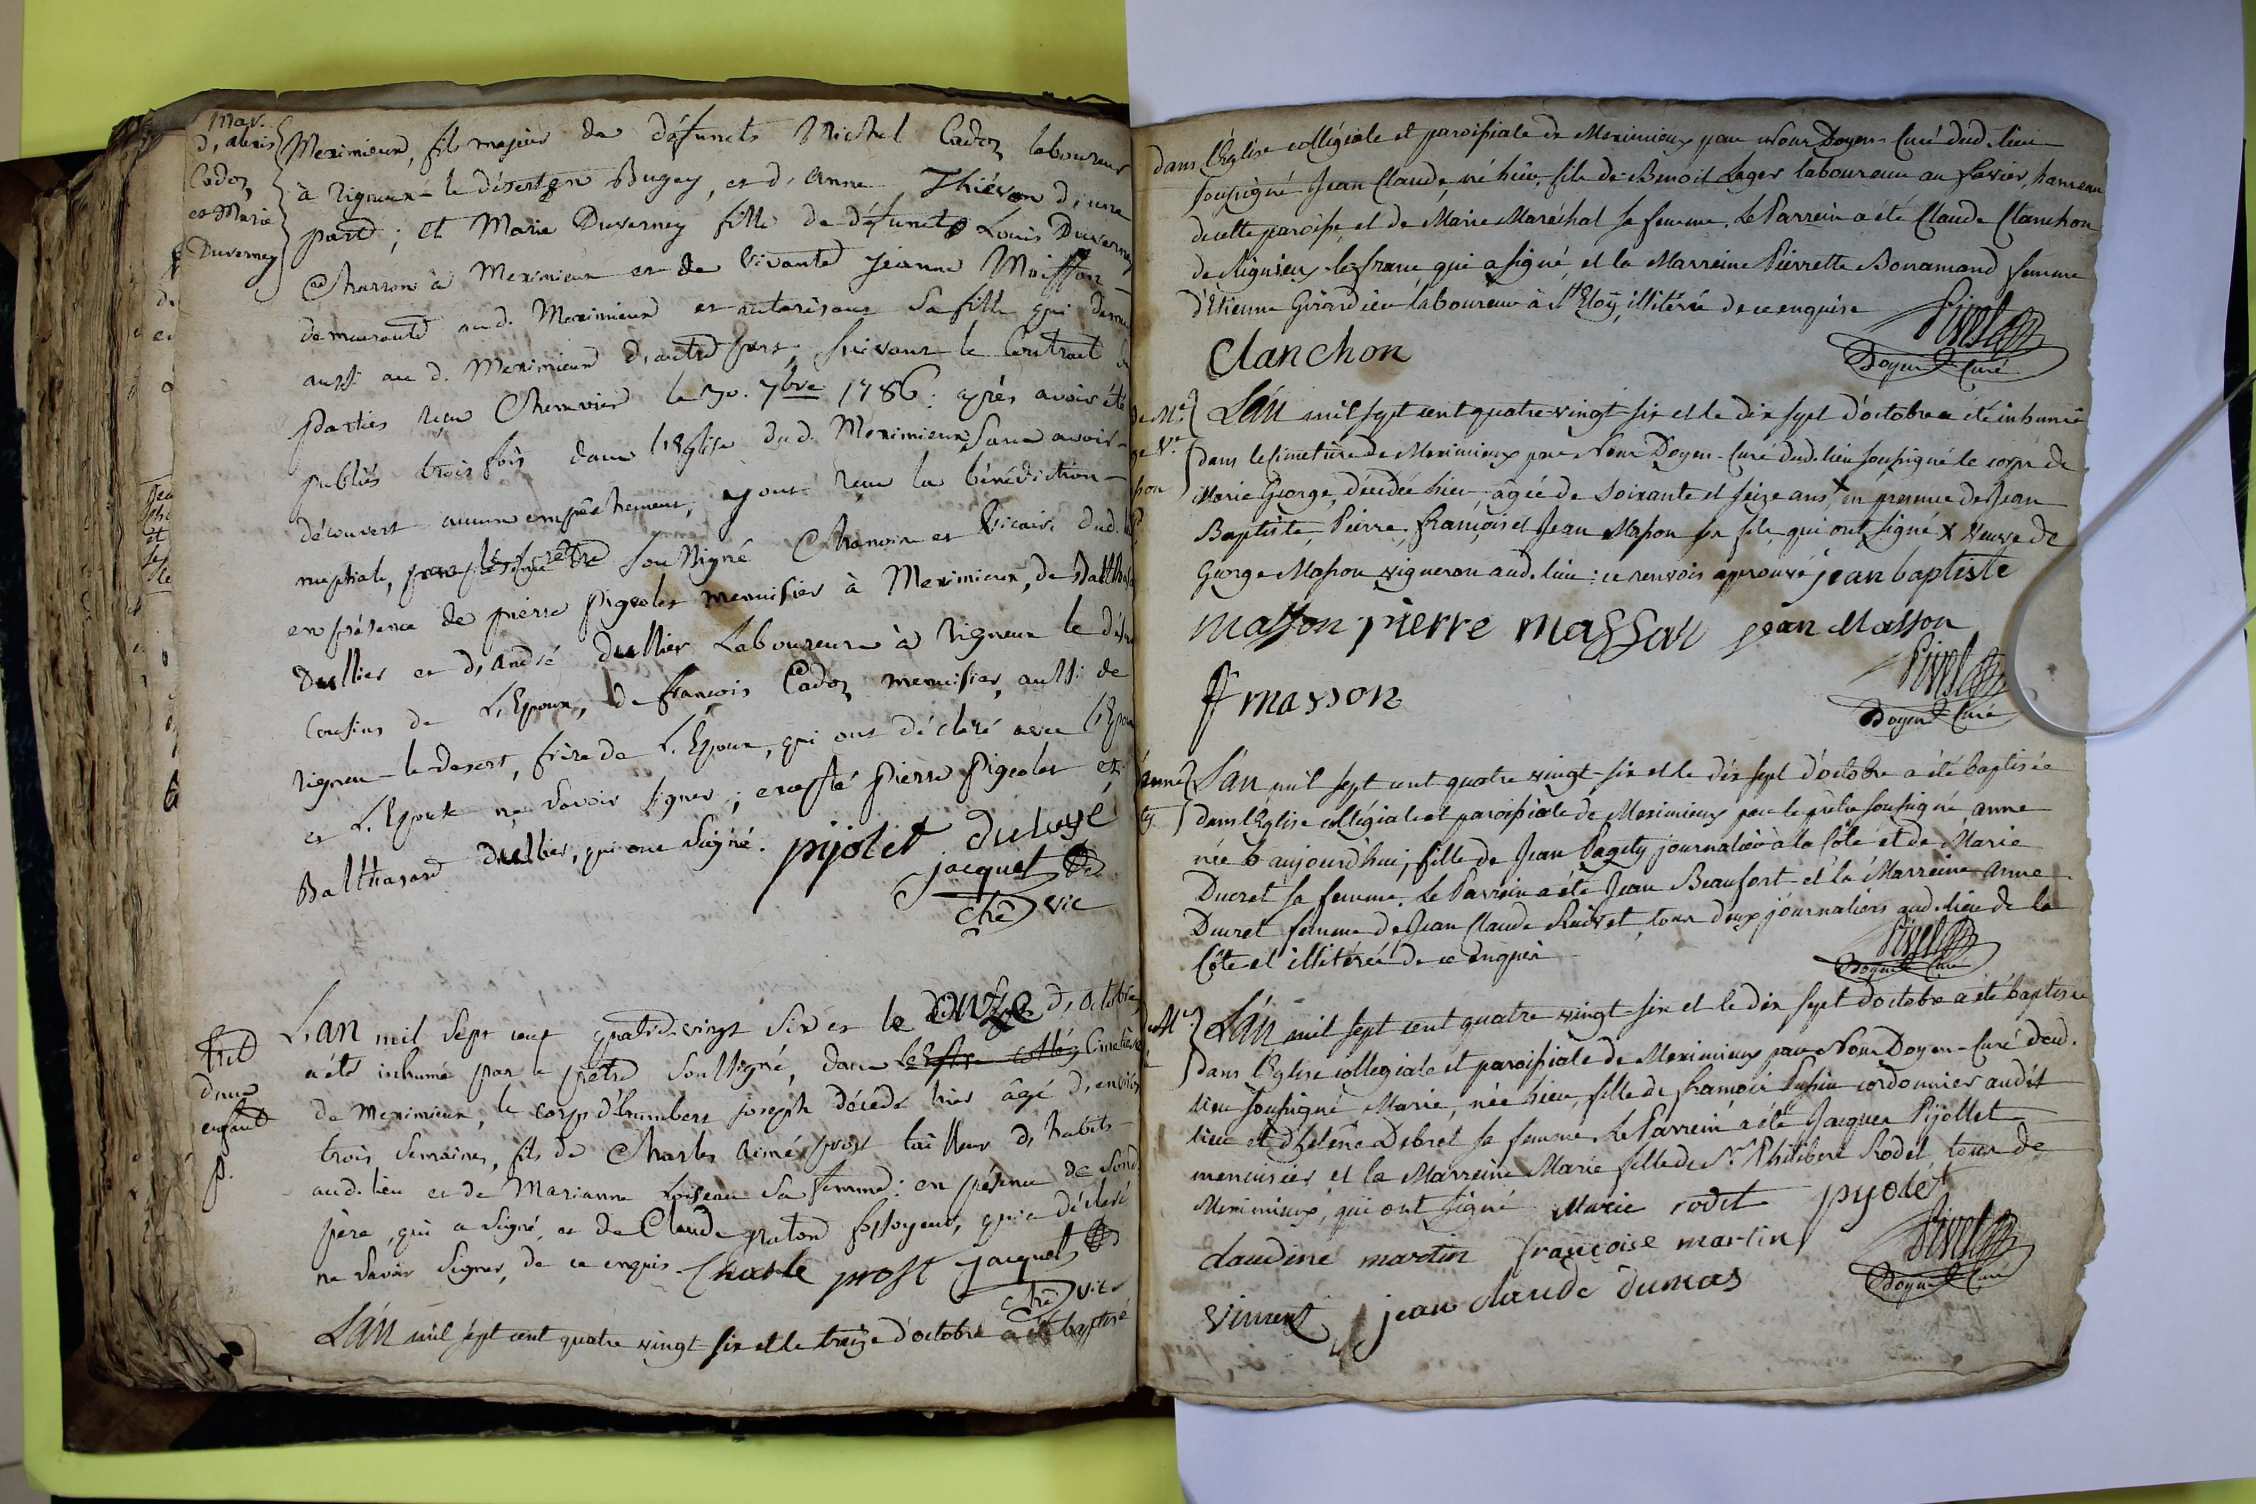 mar.
d'alexis
Cadoz
et Marie
Duverney
Meximieux, fils majeur de défuncts Michel Cadoz laboureur
à Rigneux-le désert en Bugey, et d'Anne Thiévon d'une
part; et Marie Duverney fille de défunct Louis Duverney
Charron à Meximieux et de vivante jeanne Moisson
demeurante aud. Meximieux et autorisant sa fille qui
aussi au d. Meximieux d'autre part, suivant le Contrat
parties reçu Chenevier le 30. 7bre 1786: après avoir été
publiés trois fois dans l'Eglise dud. Meximieux sans avoir
découvert aucun empêchement, ayant reçu la bénédiction
nuptiale, soussigné Chanoine et Vicaire dud.
en présence de pierre Pigeolet menuisier à Meximieux, de
Dullier et d'André Dullier Laboureurs à Rigneux le
Cousins de L'Epoux, de françois Cadoz menuisier aussi de
Rigneu-le desert, frère de L'Epoux, qui ont déclaré avec
et L'Epouse ne savoir signer; excepté pierre Pigeolet et
Balthasard Dullier, qui ont signé. pijolet
jacquet
che vic
enfant
p.
L'an mil sept cent quatre-vingt six et le douze d'octobre
a été inhumé par le prêtre soussigné, dans le Cimetière
de Meximieux, le corps d'humbert joseph décédé hier âgé d'environ
trois semaines, fils de Charles Aimé prost tailleur d'habits
aud. lieu et de Marianne Loiseau sa femme: en présence de
père, qui a signé, et de Claude graton fossoyeur, qui a déclaré
ne savoir signer, de ce enquis Charle prost jacquet
che vic
L'an mil sept cent quatre vingt-six et le treize d'octobre a été baptisé
dans l'Eglise collégiale et paroissiale de Meximieux par Nous Doyen-Curé dud. lieu
soussigné Jean Claude, né hier, fils de Benoit Leger laboureur au hameau
de cette paroisse et de Marie Maréchal sa femme. Le Parrein a été Claude Clanchon
de Rignieux-le-franc qui a signé, et la Marreine Pierrette Bonamand femme
d'Etienne Girardieu laboureur à St Eloy, illitérée de ce enquise
Clanchon
Pivet
Doyen Curé
L'an mil sept cent quatre-vingt-six et le dix sept d'octobre a été inhumé
dans le Cimetière de Meximieux par Nous Doyen-Curé dud. lieu soussigné le corps de
Marie George, décédée hier âgée de soixante et seize ans X en presence de Jean
Baptiste, Pierre, François et Jean Masson ses fils, qui ont signé X Veuve de
George Masson vigneron aud. lieu: ce renvois approuvé jean baptiste
masson pierre massau jean Masson
f masson
Pivet
Doyen Curé
L'an mil sept cent quatre vingt-six et le dix sept d'octobre a été baptisée
dans l'Eglise collégiale et paroissiale de Meximieux par le prêtre soussigné, anne
née aujourd'hui, fille de Jean Pagety journalier à la Côte et de Marie
Ducret sa femme. Le Parrein a été Jean Beaufort et la Marreine Anne
Ducret femme de Jean Claude Ruivet, tous deux journaliers aud. lieu de la
Côte et illitérés de ce enquis
Pivet
Doyen Curé
L'an mil sept cent quatre vingt-six et le dix sept d'octobre a été baptisée
dans l'Eglise collégiale et paroissiale de Meximieux par Nous Doyen-Curé dud.
lieu soussigné Marie, née hier, fille de François cordonnier audit
lieu et d'helène Debret sa femme. Le Parrein a été Jacques Pijollet
menuisier et la Marreine Marie fille de Sr Philibert Rodet, tous de
Meximieux, qui ont signé Marie rodet pijolet
claudine martin françoise martin
Pivet
Doyen Curé
vincent jean claude dumas